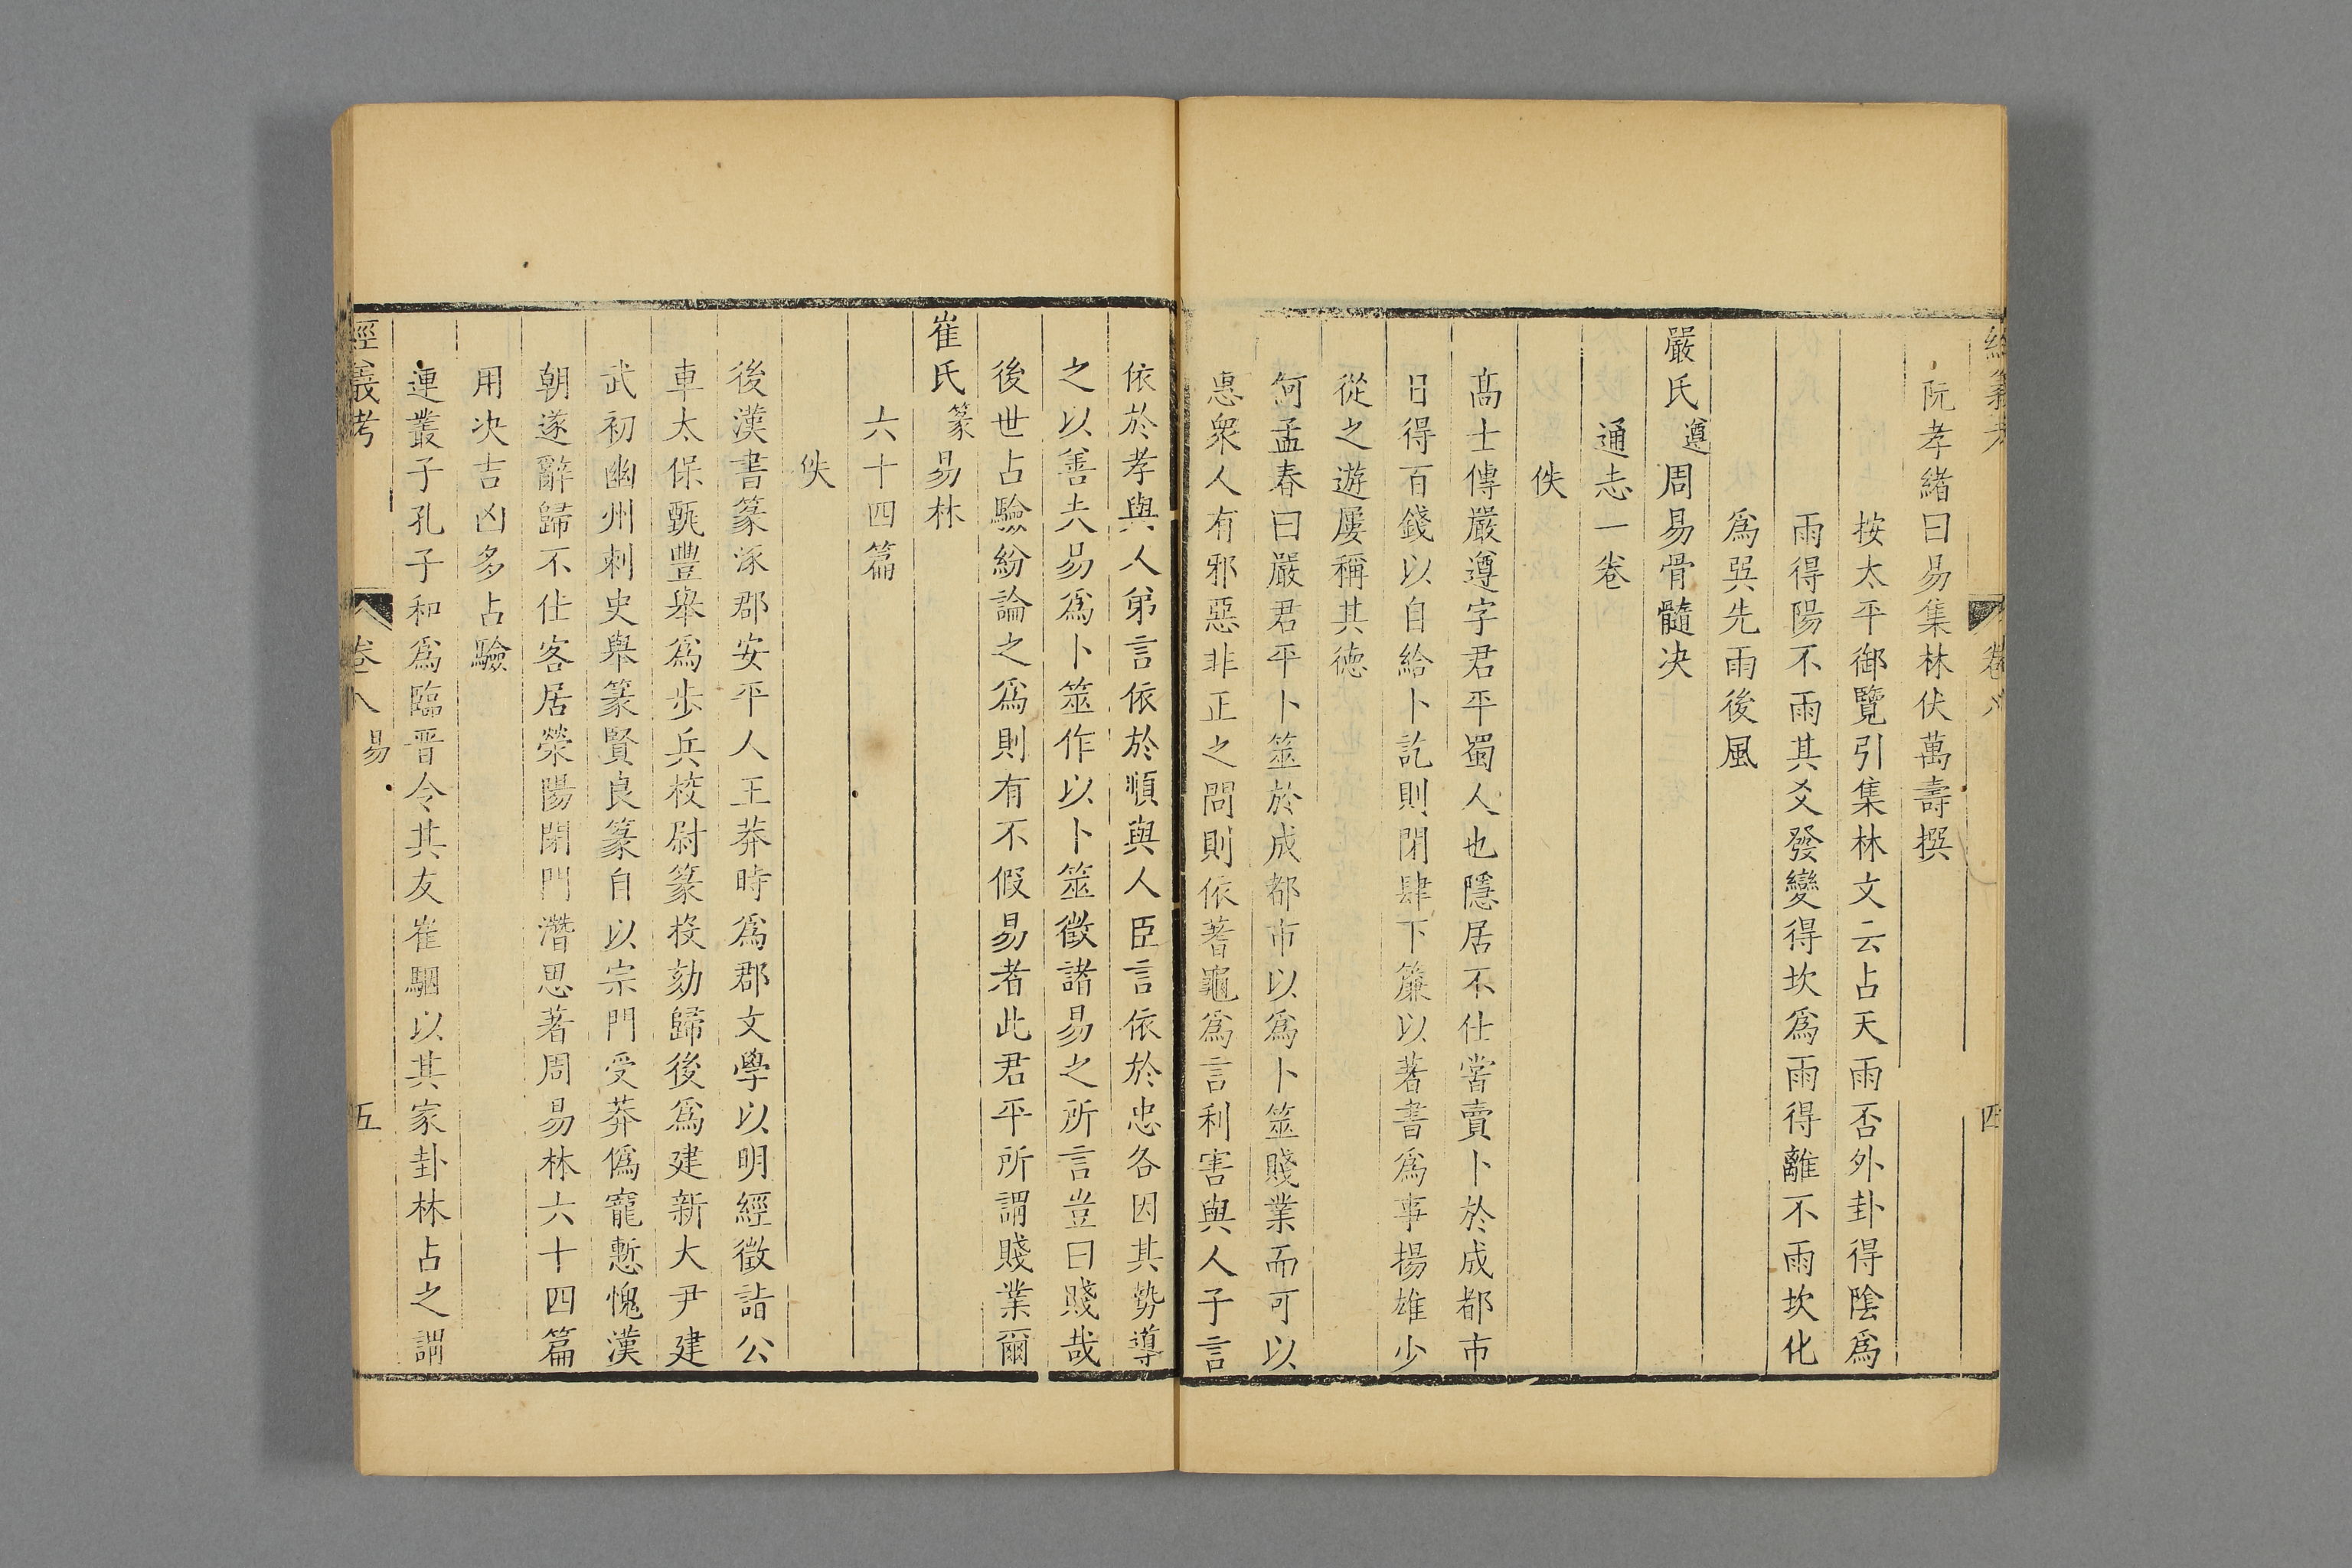 經義考
卷八
四
阮孝緒曰易集林伏萬壽撰
按太平御覽引集林文云占天雨否外卦得陰爲
雨得陽不雨其爻發變得坎爲雨得離不雨坎化
爲巽先雨後風
嚴氏遵周易骨髓决
通志一卷
佚
髙士傳嚴遵字君平蜀人也隱居不仕嘗賣卜於成都市
日得百錢以自給卜訖則閉肆下簾以著書爲事揚雄少
從之遊屢稱其德
何孟春曰嚴君平卜筮於成都市以爲卜筮賤業而可以
惠衆人有邪惡非正之問則依蓍龜爲言利害與人子言
依於孝與人弟言依於順與人臣言依於忠各因其勢導
之以善夫易爲卜筮作以卜筮徵諸易之所言豈曰賤哉
後世占驗紛論之爲則有不假易者此君平所謂賤業爾
崔氏篆易林
六十四篇
佚
後漢書篆涿郡安平人王莽時爲郡文學以明經徵詣公
車太保甄豐舉爲步兵校尉篆投劾歸後爲建新大尹建
武初幽州刺史舉篆賢良篆自以宗門受莽僞寵慙愧漢
朝遂辭歸不仕客居滎陽閉門潛思著周易林六十四篇
用决吉凶多占驗
連叢子孔子和爲臨晋令其友崔駰以其家卦林占之謂
經義考
卷八
易
五